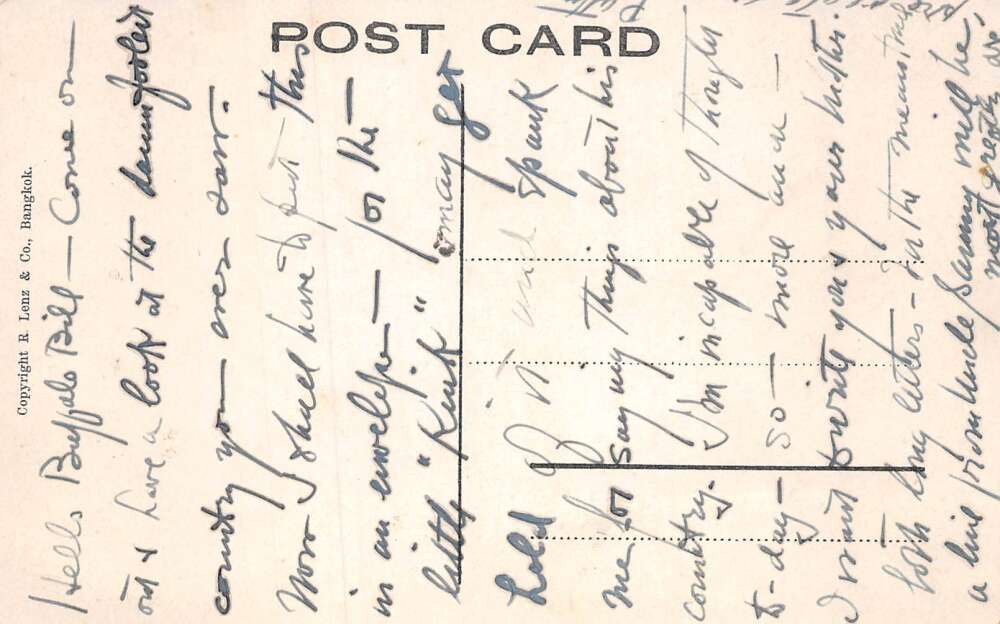 POST CARD
Copyright R. Lenz & Co., Bangkok.
Hello Buffalo Bill — Come on
out & have a look at the damnfoolest
country you ever saw.
Now I shall have to put this
in an envelope — for the —
little "Knik" may get
hold of it and spank
me for saying things about his
country. I'm incapable of thought
to-day — so — more anon —
I want to write you & your mother
both long letters — in the meantime
a line from Uncle Sammy will be
most